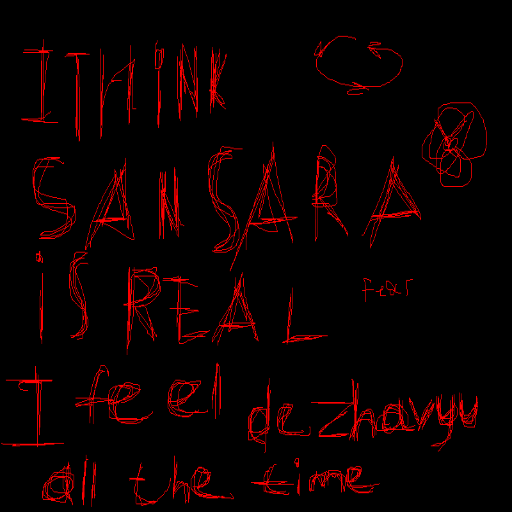 I THiNK
SANSARA
iS REAL
fear
I feel dezhavyu
all the time